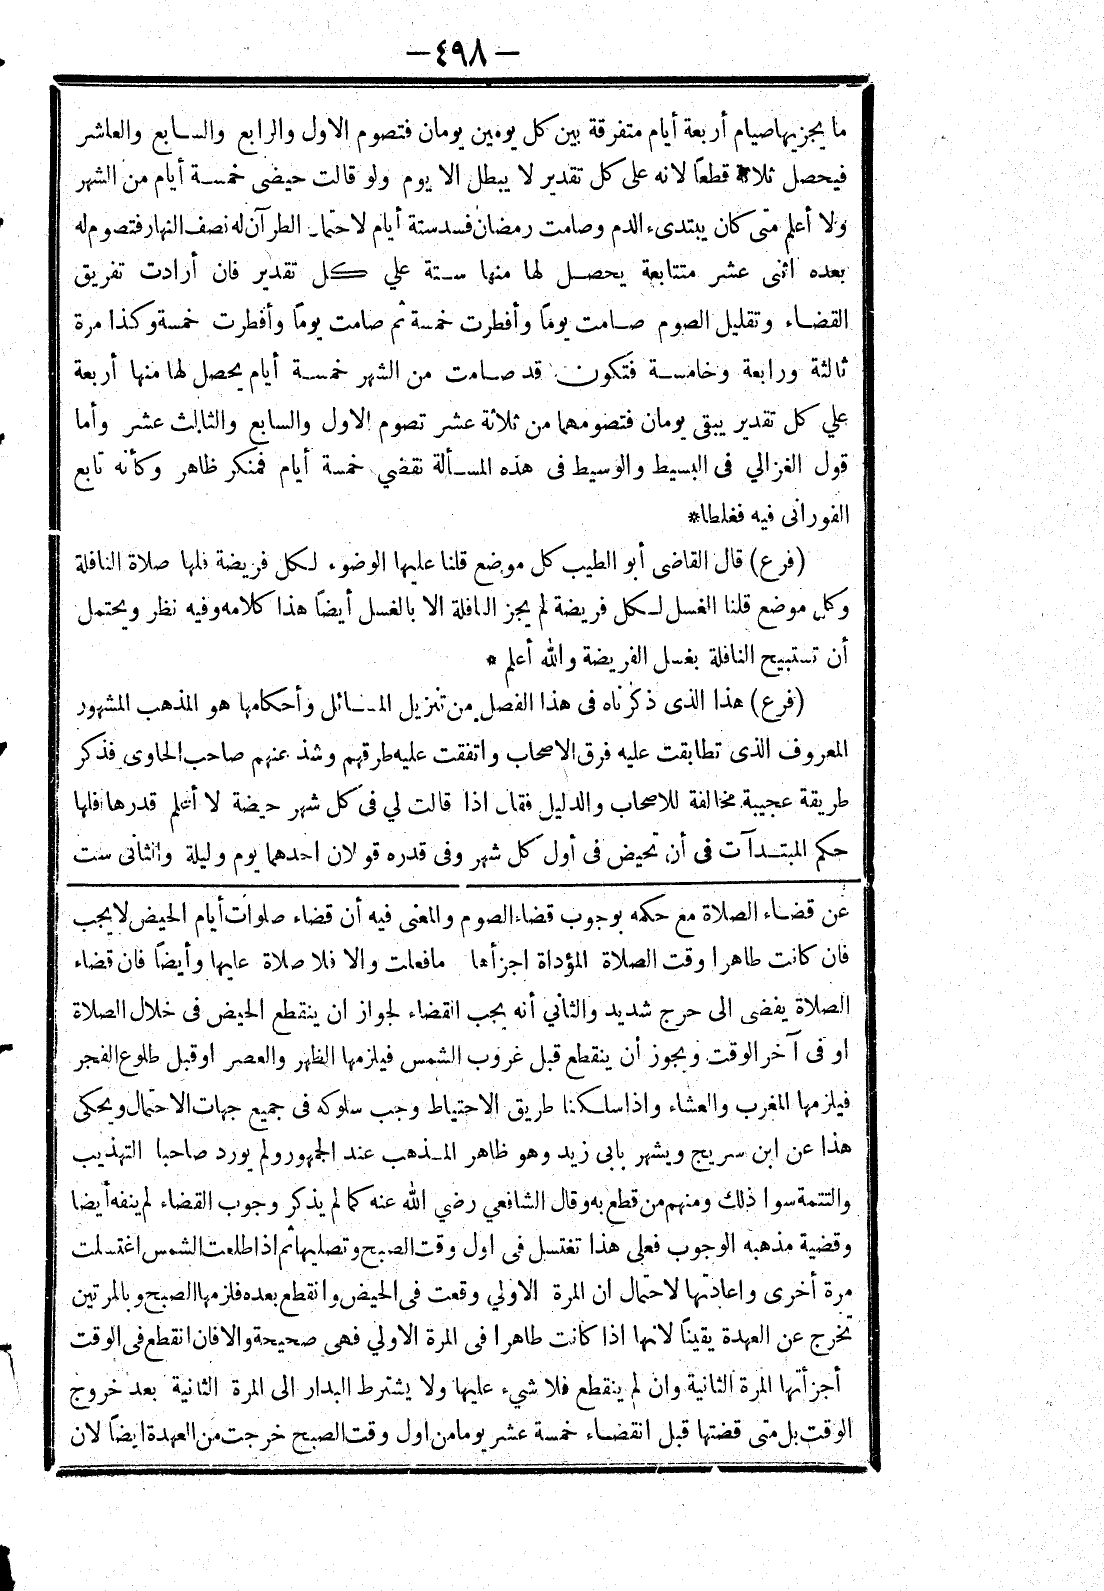 — ٤٩٨ —
ما يجزيها صيام أربعة أيام متفرقة بين كل يومين يومان فتصوم الاول والرابع والسابع والعاشر
فيحصل ثلاثة قطعاً لانه على كل تقدير لا يبطل الا يوم ولو قالت حيضى خمسة أيام من الشهر
ولا أعلم متى كان يبتدىء الدم وصامت رمضان فسد ستة أيام لاحتمال الطرآن له نصف النهار فتصوم له
بعده اثنى عشر متتابعة يحصل لها منها ستة علي كل تقدير فان أرادت تفريق
القضاء وتقليل الصوم صامت يوماً وأفطرت خمسة ثم صامت يوماً وأفطرت خمسة وكذا مرة
ثالثة ورابعة وخامسة فتكون قد صامت من الشهر خمسة أيام يحصل لها منها أربعة
علي كل تقدير يبقى يومان فتصومهما من ثلاثة عشر تصوم الاول والسابع والثالث عشر وأما
قول الغزالي فى البسيط والوسيط فى هذه المسألة تقضي خمسة أيام فمنكر ظاهر وكأنه تابع
الفورانى فيه فغلطا*
(فرع) قال القاضى أبو الطيب كل موضع قلنا عليها الوضوء لكل فريضة فلها صلاة النافلة
وكل موضع قلنا الغسل لكل فريضة لم يجز النافلة الا بالغسل أيضاً هذا كلامه وفيه نظر ويحتمل
أن تستبيح النافلة بغسل الفريضة والله أعلم *
(فرع) هذا الذى ذكرناه فى هذا الفصل من تنزيل المسائل وأحكامها هو المذهب المشهور
المعروف الذى تطابقت عليه فرق الاصحاب واتفقت عليه طرقهم وشذ عنهم صاحب الحاوى فذكر
طريقة عجيبة مخالفة للاصحاب والدليل فقال اذا قالت لي فى كل شهر حيضة لا أعلم قدرها فلها
حكم المبتدآت فى أن تحيض فى أول كل شهر وفى قدره قولان احدهما يوم وليلة والثانى ست
عن قضاء الصلاة مع حكمه بوجوب قضاء الصوم والمعنى فيه أن قضاء صلوات أيام الحيض لا يجب
فان كانت طاهرا وقت الصلاة المؤداة اجزأها مافعلت والا فلا صلاة عليها وأيضاً فان قضاء
الصلاة يفضى الى حرج شديد والثاني أنه يجب القضاء لجواز ان ينقطع الحيض فى خلال الصلاة
او فى آخر الوقت ويجوز أن ينقطع قبل غروب الشمس فيلزمها الظهر والعصر او قبل طلوع الفجر
فيلزمها المغرب والعشاء واذا سلكنا طريق الاحتياط وجب سلوكه فى جميع جهات الاحتمال ويحكى
هذا عن ابن سريج ويشهر بابى زيد وهو ظاهر المذهب عند الجمهور ولم يورد صاحبا التهذيب
والتتمة سوا ذلك ومنهم من قطع به وقال الشافعي رضي الله عنه كما لم يذكر وجوب القضاء لم ينفه أيضا
وقضية مذهبه الوجوب فعلى هذا تغتسل فى اول وقت الصبح وتصليها ثم اذا طلعت الشمس اغتسلت
مرة أخرى واعادتها لاحتمال ان المرة الاولي وقعت فى الحيض وانقطع بعده فلزمها الصبح وبالمرتين
تخرج عن العهدة يقيناً لانها اذا كانت طاهرا فى المرة الاولي فهى صحيحة والا فان انقطع فى الوقت
أجزأتها المرة الثانية وان لم ينقطع فلا شيء عليها ولا يشترط البدار الى المرة الثانية بعد خروج
الوقت بل متى قضتها قبل انقضاء خمسة عشر يوما من اول وقت الصبح خرجت من العهدة ايضاً لان